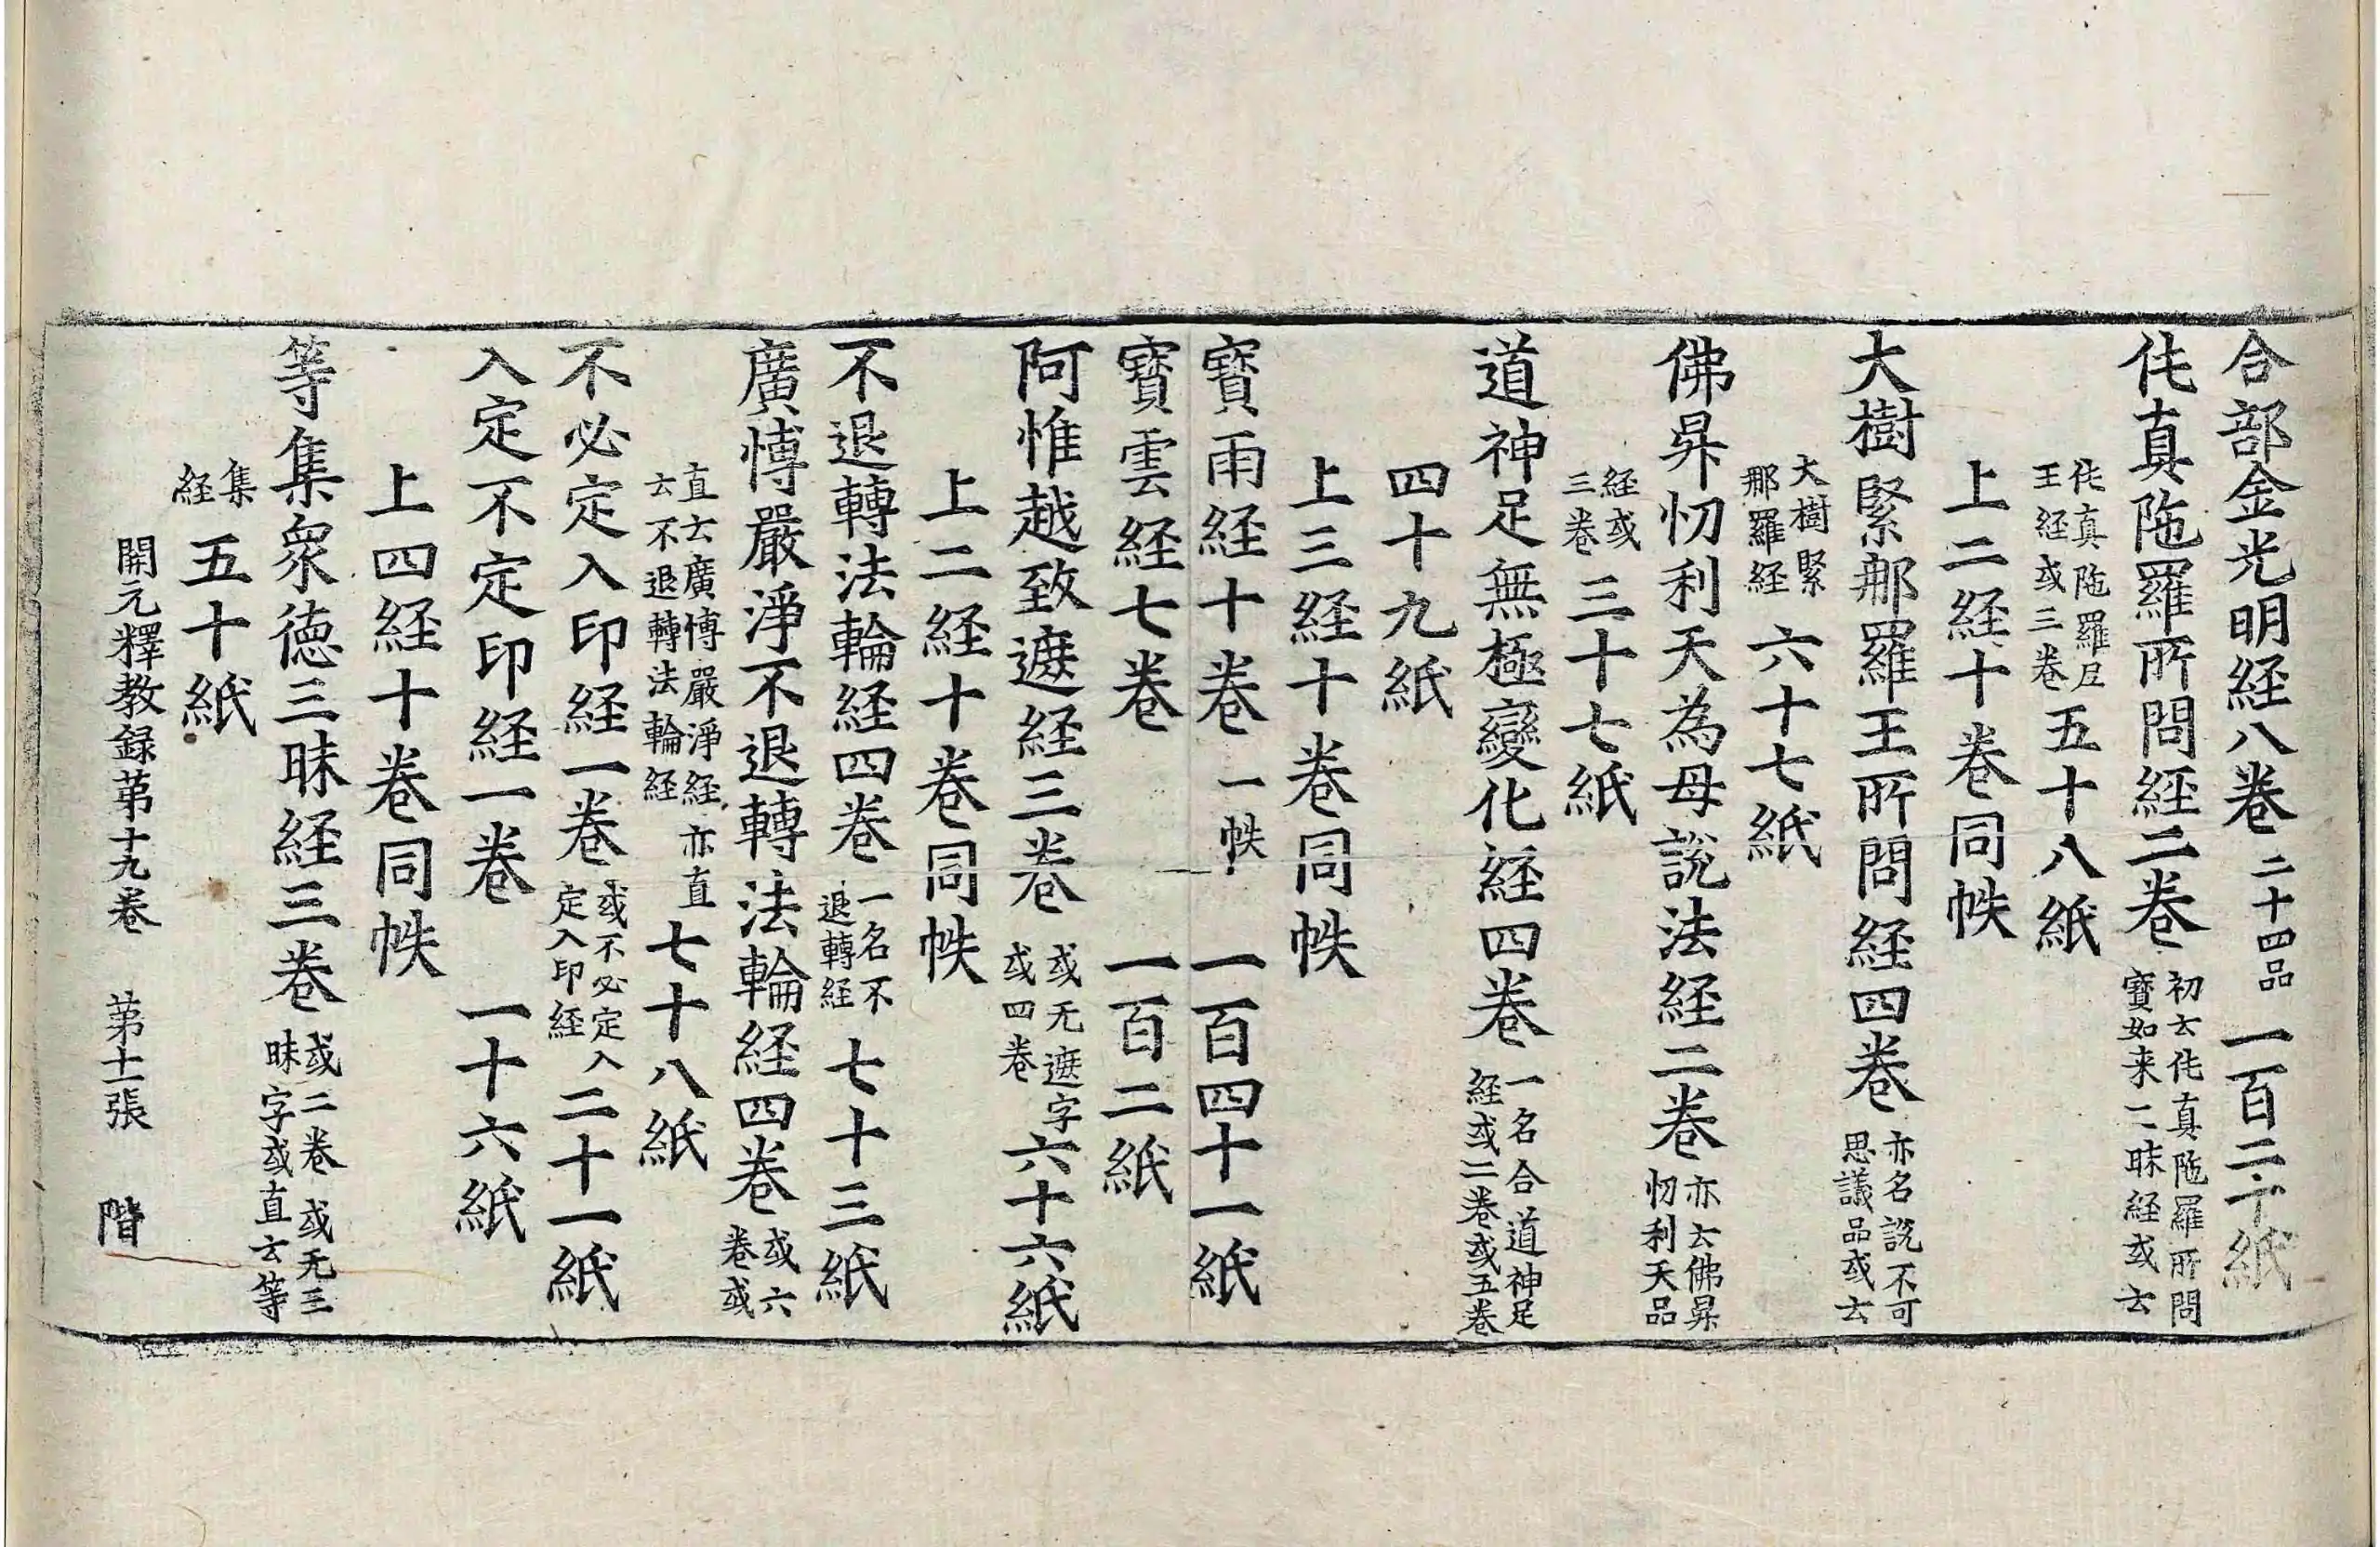 合部金光明経八巻二十四品一百二十紙
伅真陁羅所問経二巻初云伅真陁羅所問寶如来二昧経或云
伅真陁羅尼王経或三巻五十八紙
上二経十巻同帙
大樹緊那羅王所問経四巻亦名說不可思議品或云
大樹緊那羅経六十七紙
佛昇忉利天為母說法経二巻亦云佛昇忉利天品
経或三巻三十七紙
道神足無極變化経四巻一名合道神足経或二巻或五巻
四十九紙
上三経十巻同帙
寶雨経十巻一帙一百四十一紙
寶雲経七巻一百二紙
阿惟越致遮経三巻或无遮字或四巻六十六紙
上二経十巻同帙
不退轉法輪経四巻一名不退轉経七十三紙
廣愽嚴淨不退轉法輪経四巻或六巻或
直云廣愽嚴淨経亦直云不退轉法輪経七十八紙
不必定入印経一巻或不必定入定入印経二十一紙
入定不定印経一巻一十六紙
上四経十巻同帙
等集衆徳三昧経三巻或二巻或无三昧字或直云等
集経五十紙
開元釋教録苐十九巻 苐十一張 階